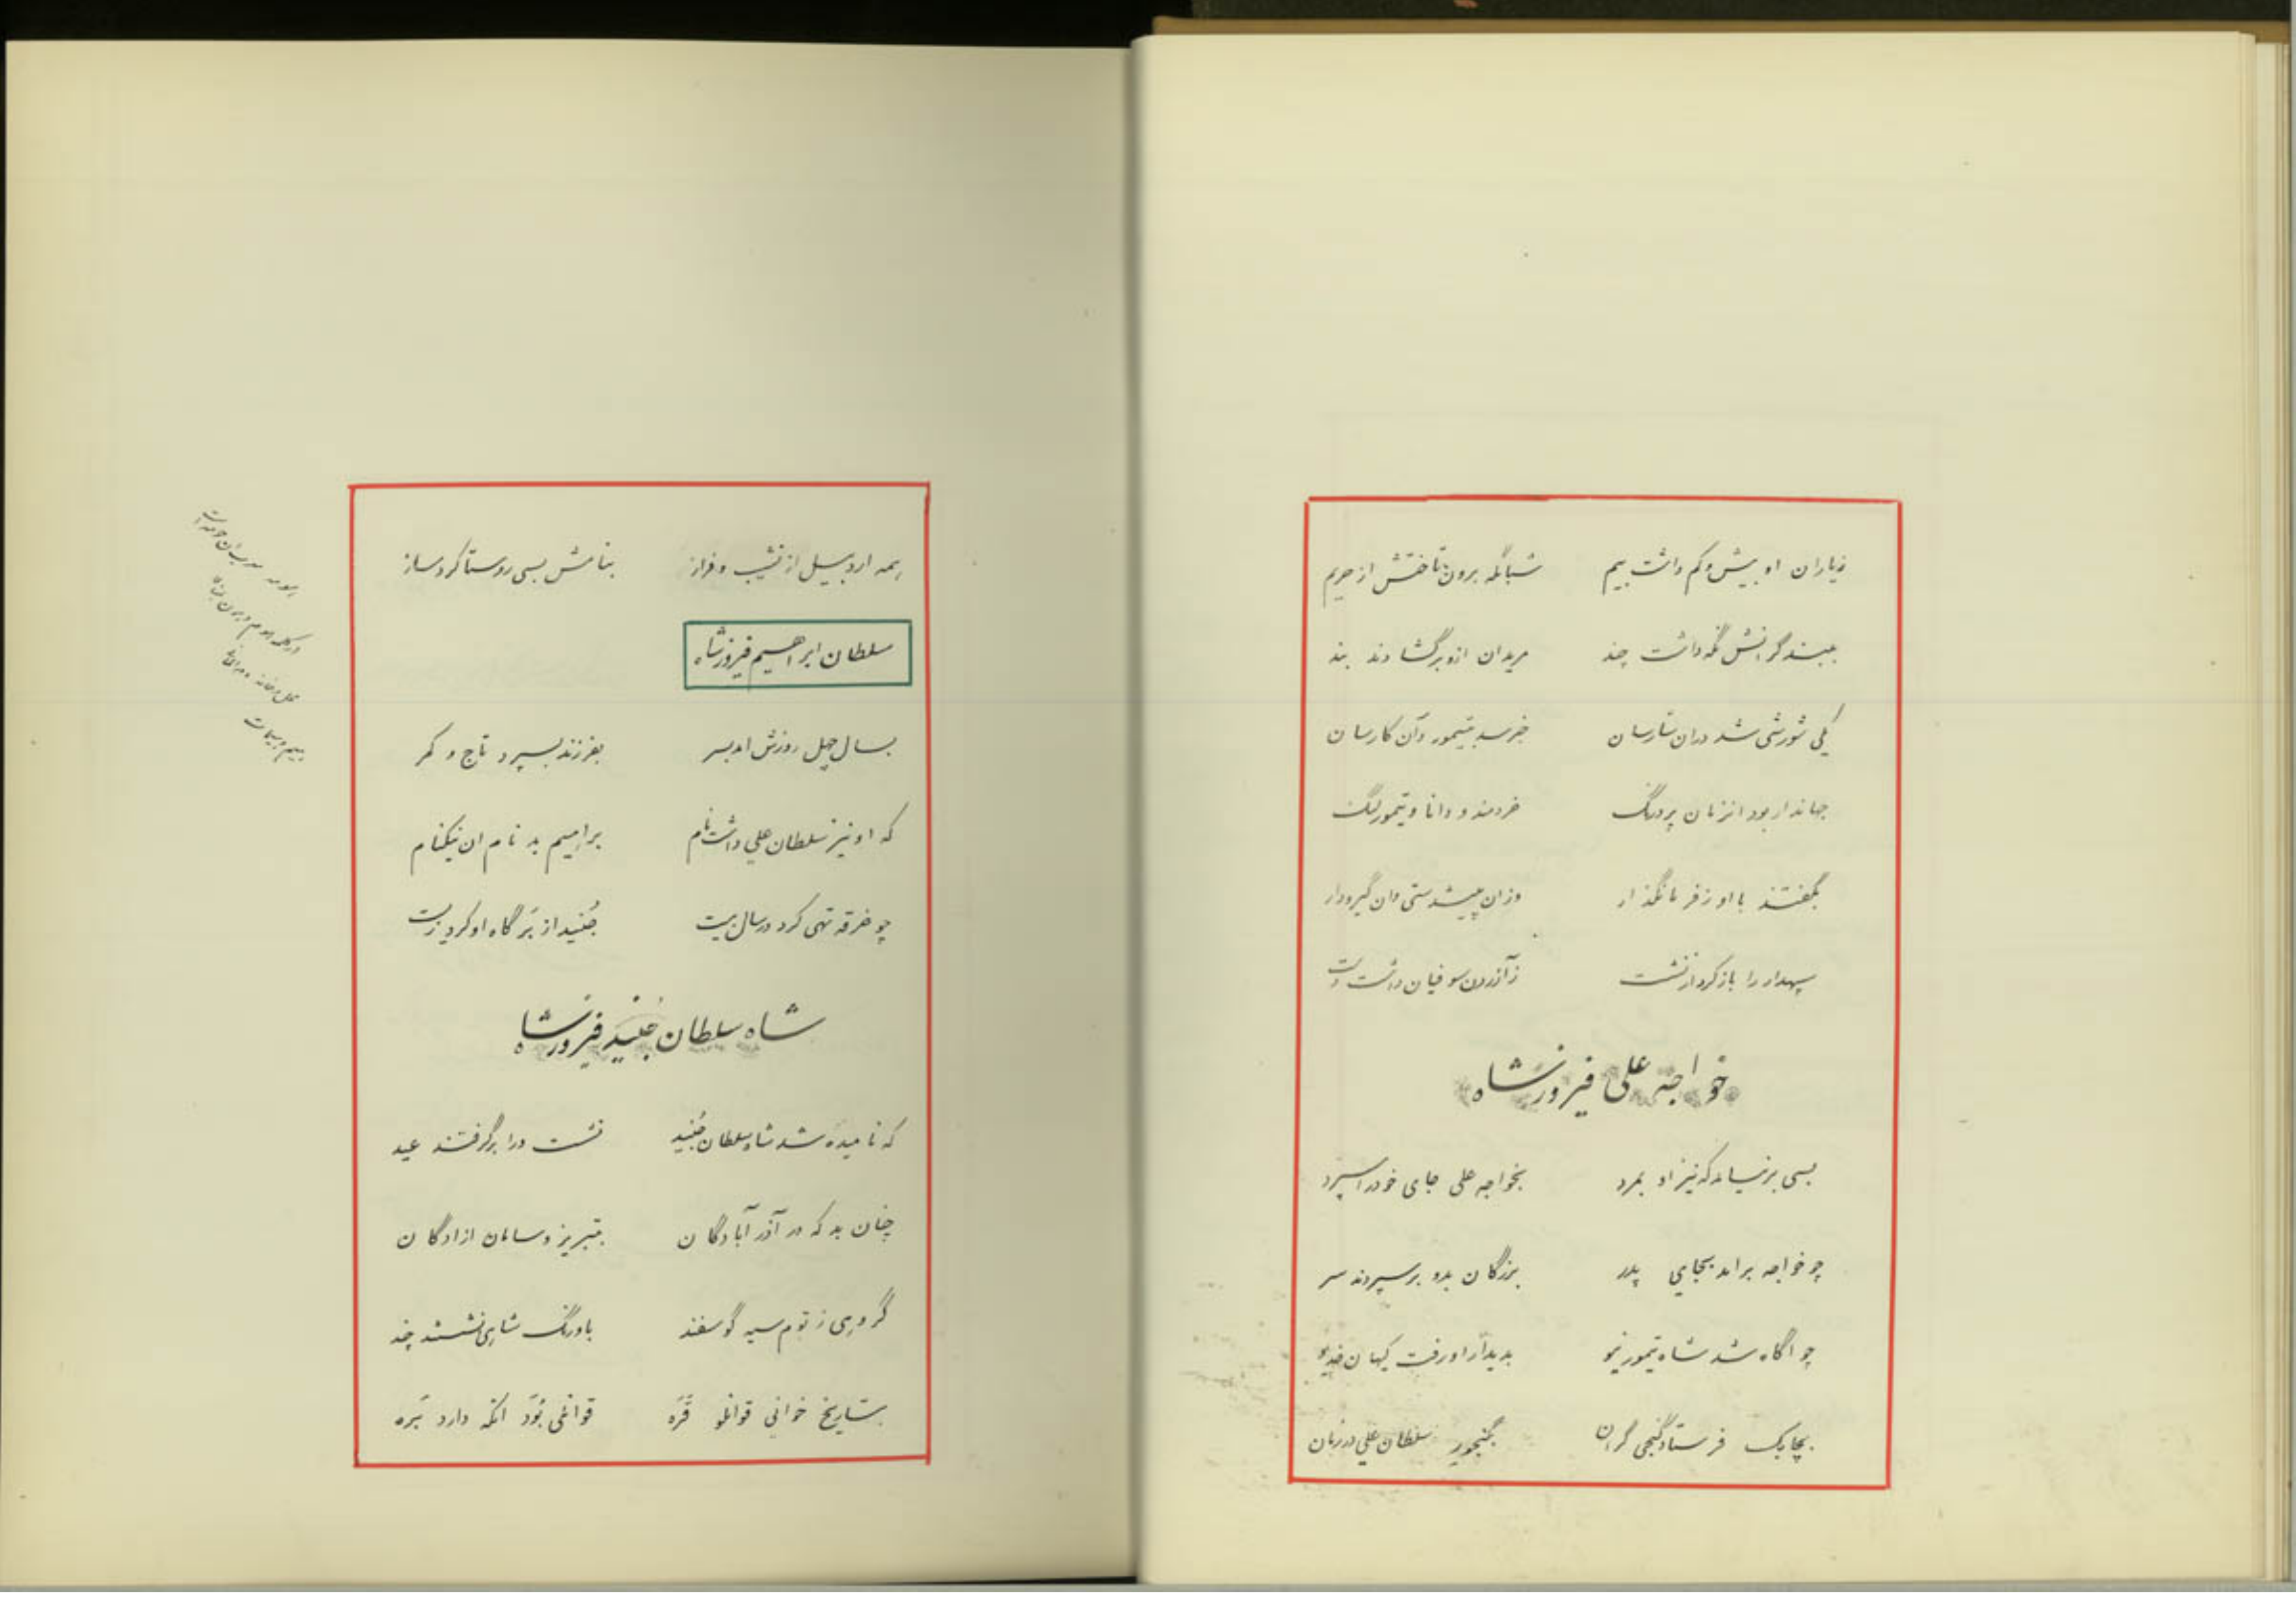 زیاران او بیش و کم داشت بیم شبانگه برون تاختش از حریم
ببند گرانش نگه داشت چند مریدان ازو برگشادند بند
یکی شورشی شد دران شارسان خبر شد بتیمور وآن کارسان
جهاندار بود انزمان پردرنگ خردمند و دانا و تیمور لنگ
بگفتند با او ز فرمانگذار وزان پیشدستی وان گیرودار
سپهدار را باز کرد از نشست ز آزردن سوفیان داشت دست
خواجه علی فیروزشاه
بسی برنیامد که نیز او بمرد بخواجه علی جای خود را سپرد
چو خواجه برامد بجای پدر بزرگان بدو برسپردند سر
چو اگاه شد شاه تیمور نیو بدیدار او رفت کیهان خدیو
بچابک فرستاد گنجی گران بگنجور سلطان علی در زمان
همه اردبیل از نشیب و فراز بنامش بسی روستا کرد ساز
سلطان ابراهیم فیروزشاه
بسال چهل روزش امد بسر بفرزند بسپرد تاج و کمر
که او نیز سلطان علی داشت نام براهیم بد نام ان نیکنام
چو خرقه تهی کرد در سال بیست جُنید از بَر گاه او کرد زیست
شاه سلطان جُنید فیروزشاه
که نامیده شد شاه سلطان جُنید نشست ورا برگرفتند عید
چنان بد که در آذر آبادگان بتبریز و سامان ازادگان
گروهی ز توم سیه گوسفند باورنگ شاهی نشستند چند
بتاریخ خوانی قوانلو قَرَه قوانلی بُوَد انکه دارد بَره